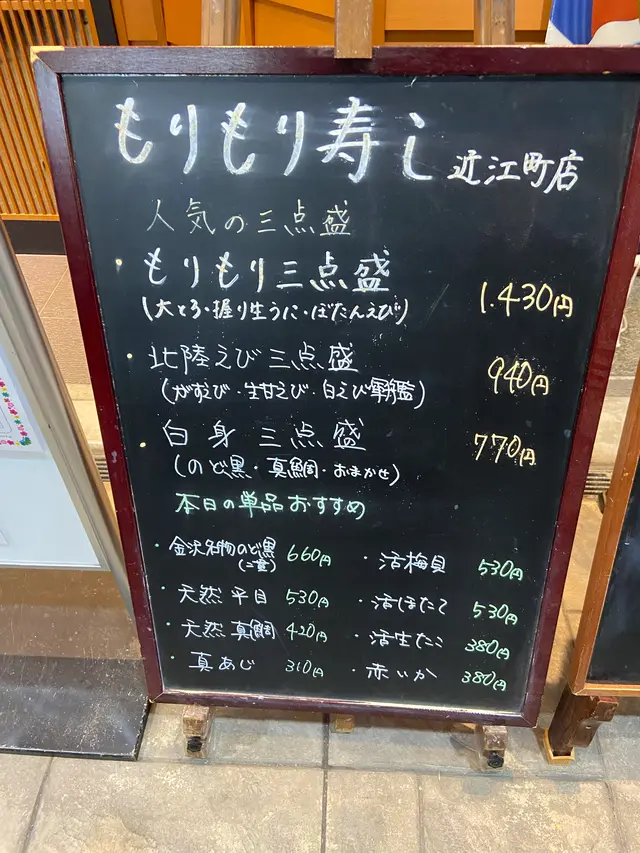 もりもり寿し 近江町店
人気の三点盛
・もりもり三点盛 1.430円
(大とろ・握り生うに・ぼたんえび)
・北陸えび三点盛 940円
(がすえび・生甘えび・白えび軍艦)
・白身三点盛 770円
(のど黒・真鯛・おまかせ)
本日の単品おすすめ
・金沢名物のど黒 660円
(二貫)
・活梅貝 530円
・天然平目 530円
・活ほたて 530円
・天然真鯛 420円
・活生たこ 380円
・真あじ 310円
・赤いか 380円